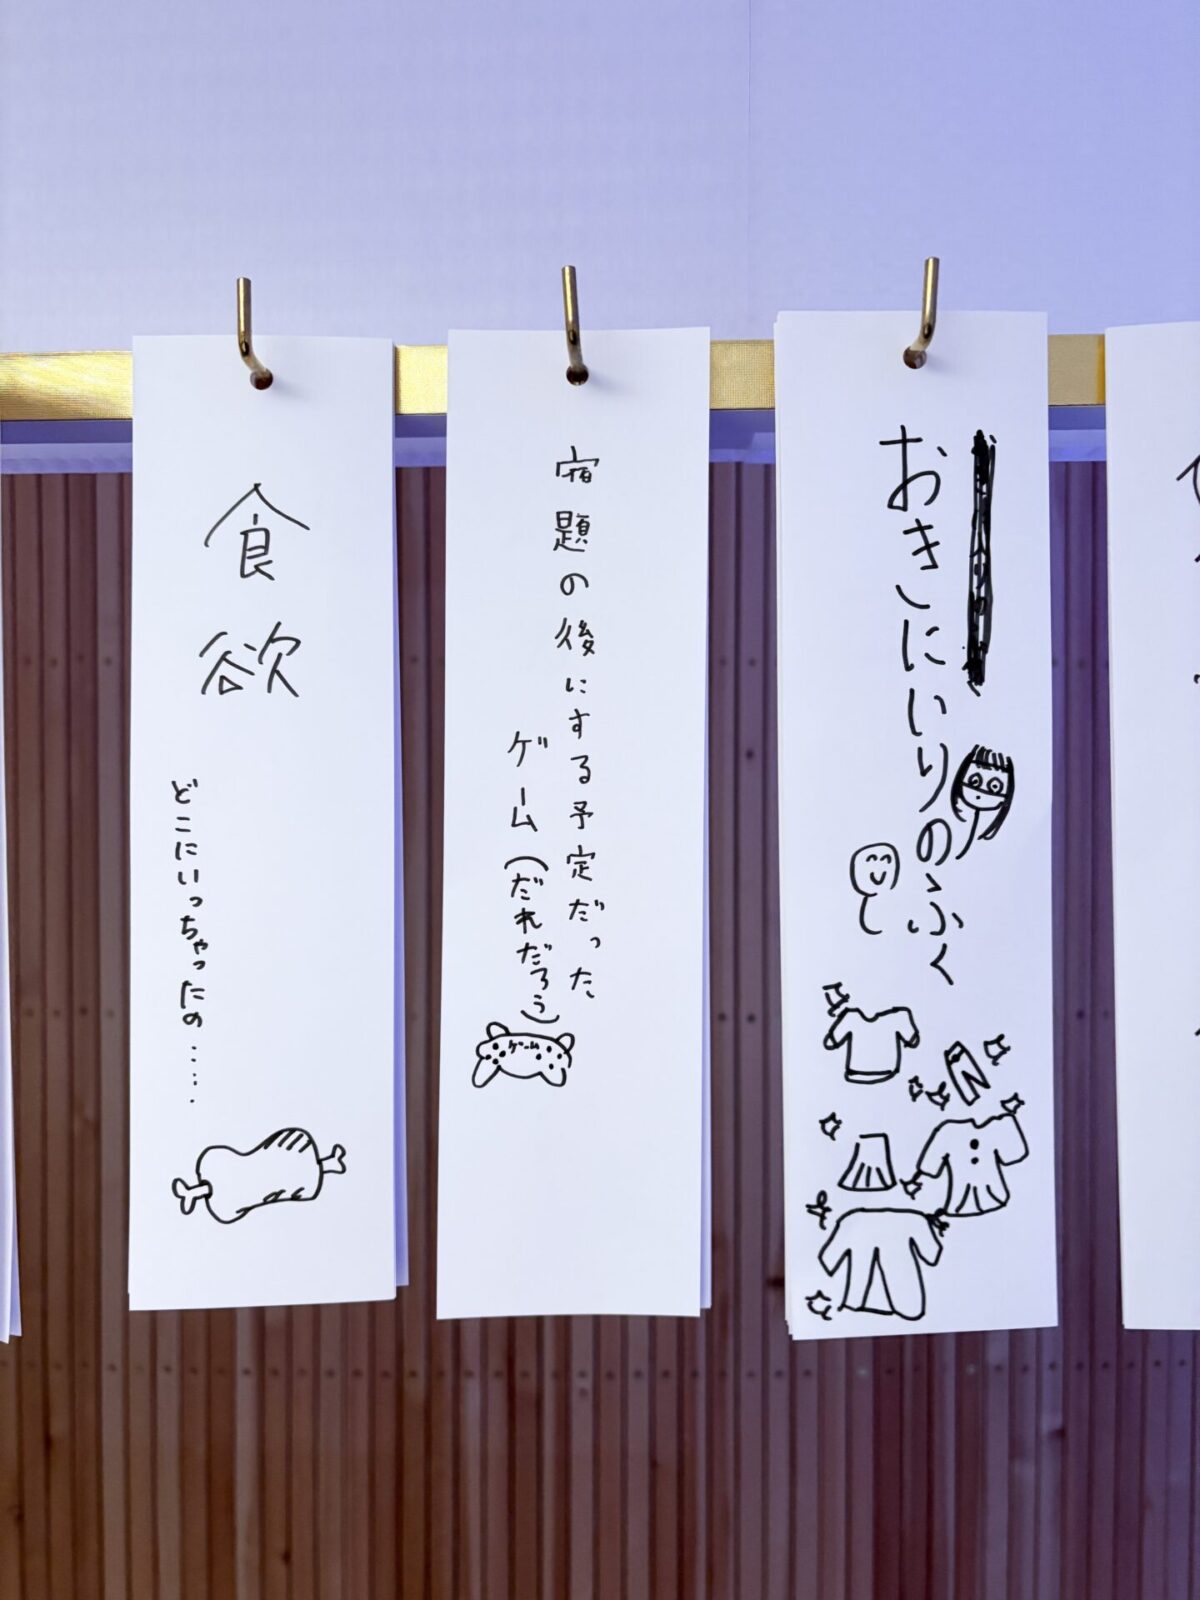 食欲
どこにいっちゃったの……
宿題の後にする予定だった
ゲーム(だれだろう)
ゲーム
おきにいりのふく